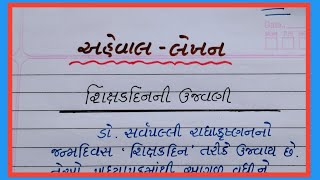 અહેવાલ - લેખન
શિક્ષકદિનની ઉજવણી
ડો. સર્વપલ્લી રાધાકૃષ્ણનનો
જન્મદિવસ 'શિક્ષકદિન' તરીકે ઉજવાય છે.